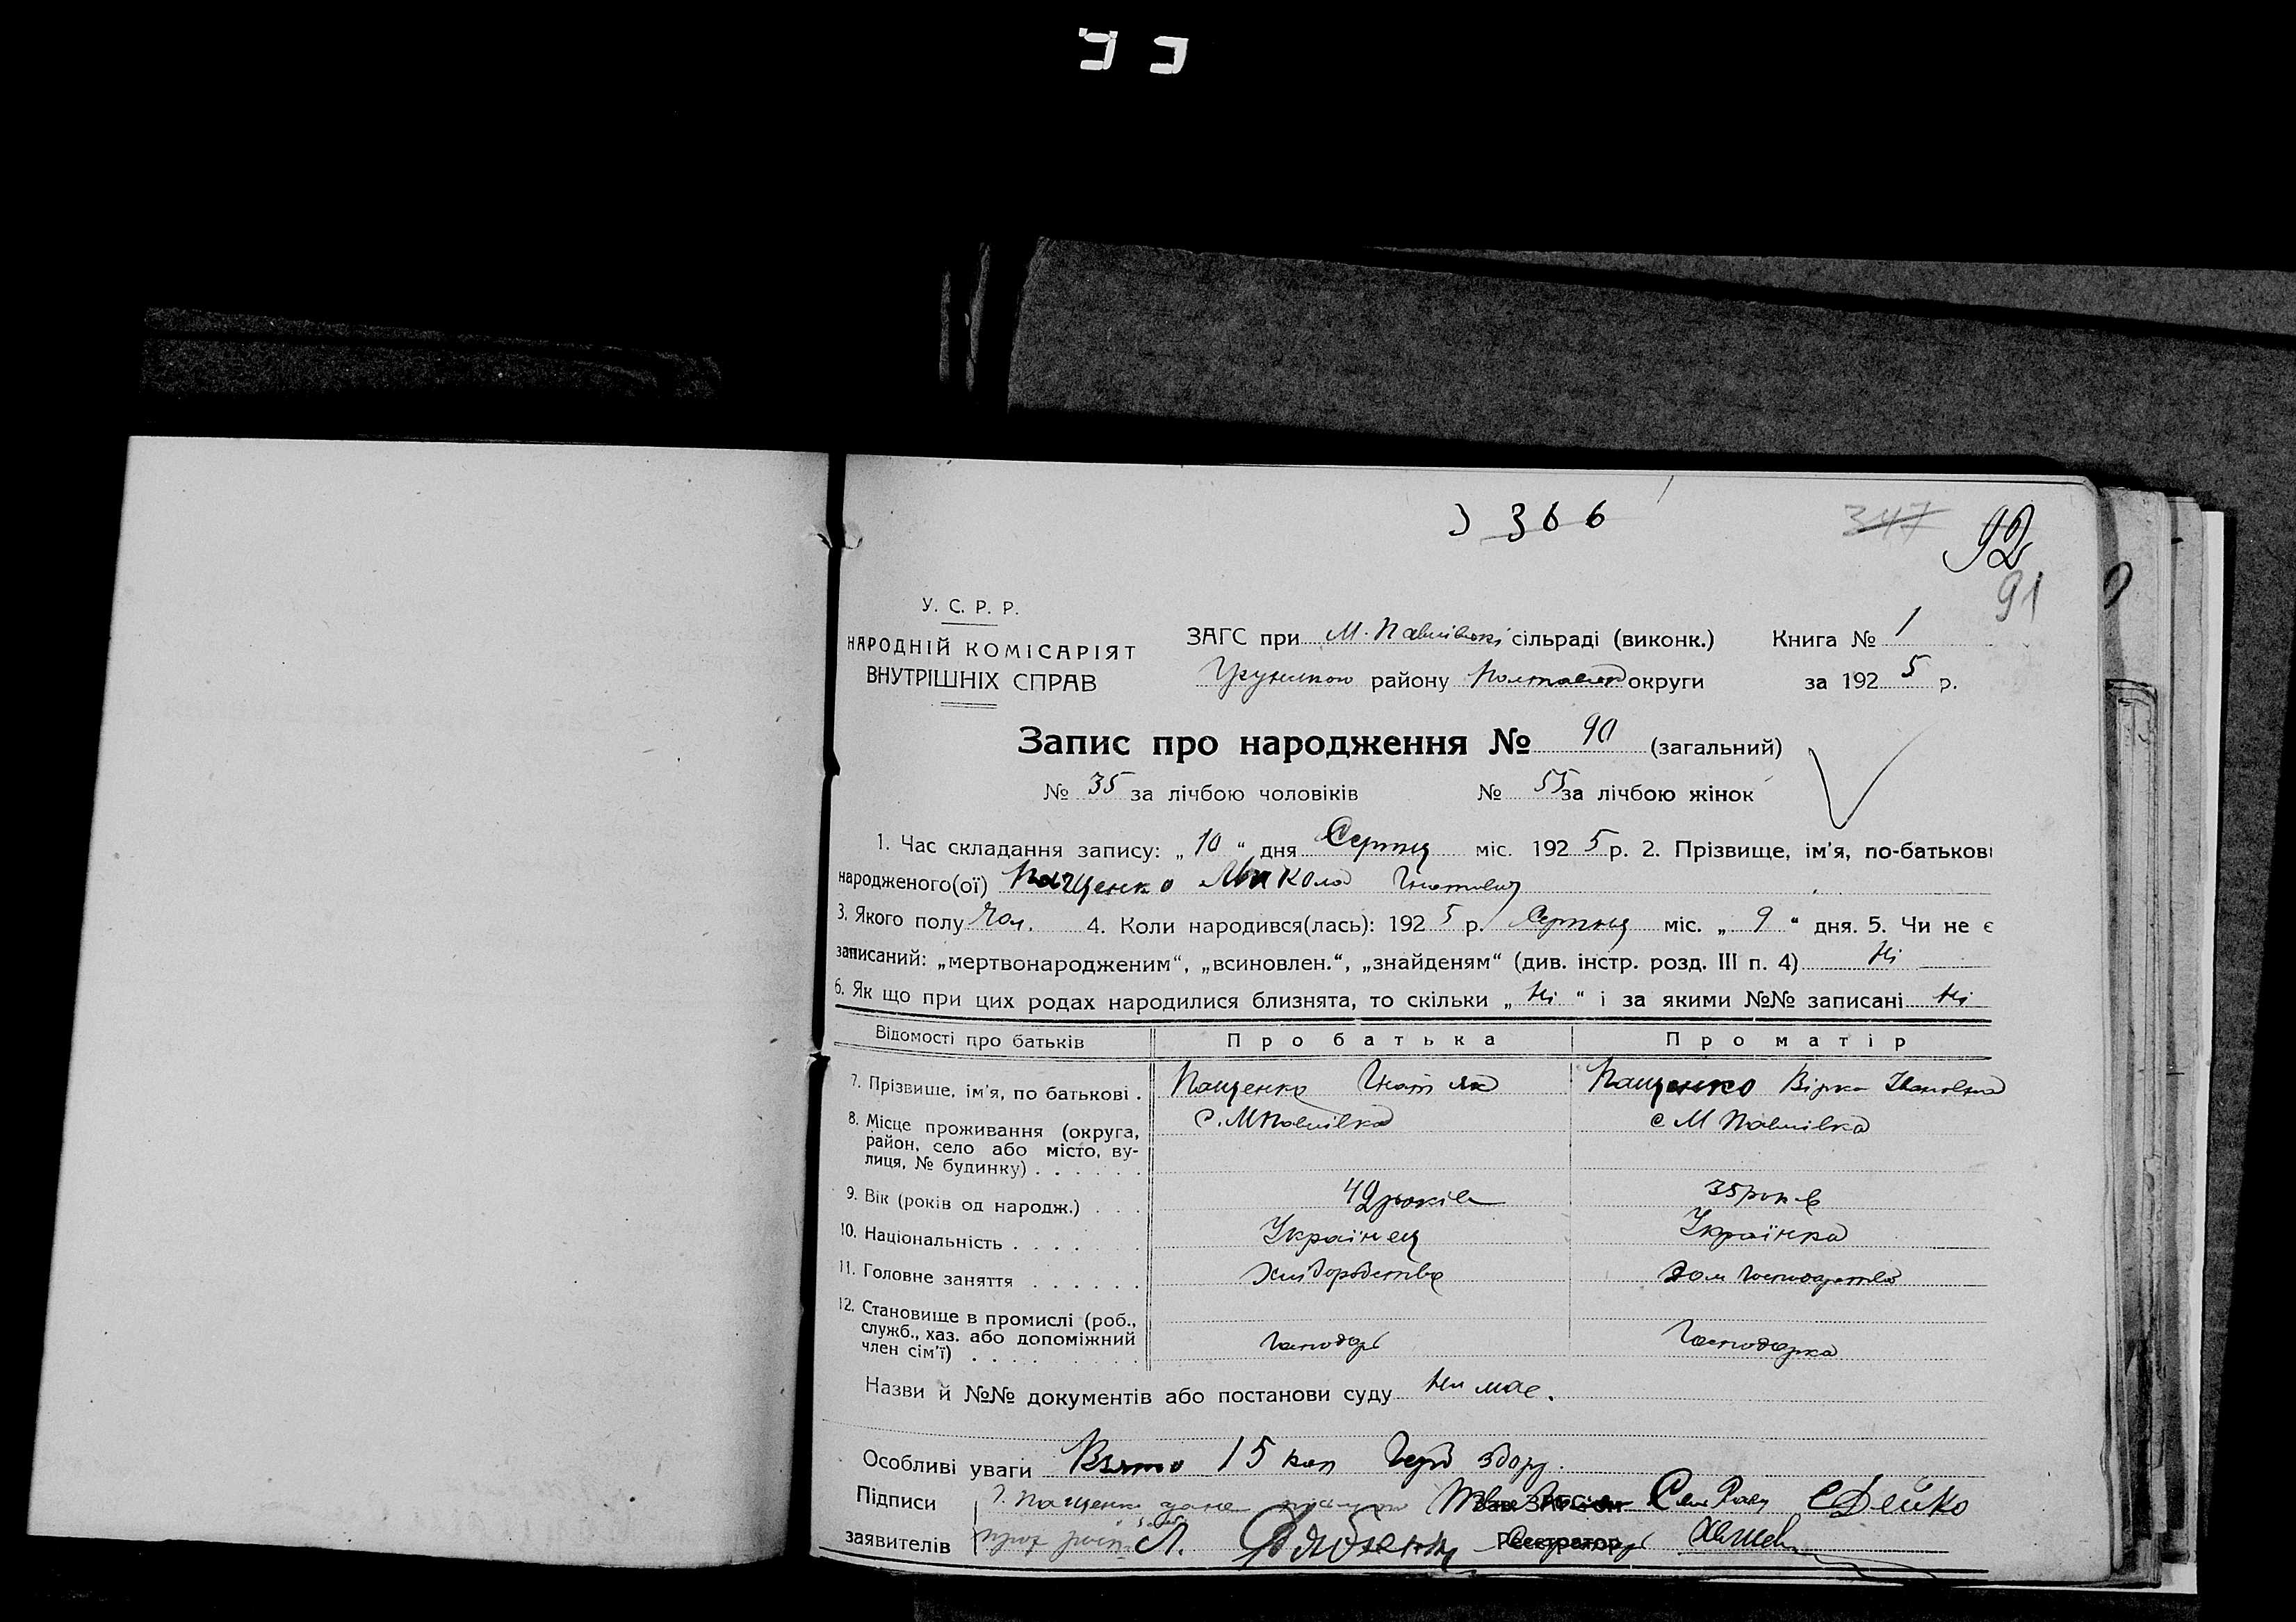 366
347 92
91
У. С. Р. Р.
НАРОДНІЙ КОМІСАРІЯТ
ВНУТРІШНІХ СПРАВ
ЗАГС при М. Павлівскі сільраді (виконк.) Книга № 1
району округи за 1925 р.
Запис про народження № 90 (загальний)
№ 35 за лічбою чоловіків № 55 за лічбою жінок
1. Час складання запису: „10“ дня Серпня міс. 1925 р. 2. Прізвище, ім'я, по-батькові
народженого(ої) Пащенко Микола Гнатович
3. Якого полу Чол. 4. Коли народився(лась): 1925 р. Серпня міс. „9“ дня. 5. Чи не є
записаний: „мертвонародженим“, „всиновлен.“, „знайденям“ (див. інстр. розд. III п. 4) Ні
6. Як що при цих родах народилися близнята, то скільки „Ні“ і за якими №№ записані Ні
Відомості про батьків Про батька Про матір
7. Прізвище, ім'я, по батькові . Пащенко Гнат Пащенко Вірка Івановна
8. Місце проживання (округа, с. М Павлівка с М Павлівка
район, село або місто, ву-
лиця, № будинку) . . . . . .
9. Вік (років од народж.) . . . 42 років 35 років
10. Національність . . . . . . . Українец Українка
11. Головне заняття . . . . . . Хліборобство Дом господарство
12. Становище в промислі (роб.,
служб., хаз. або допоміжний Господарь Господарка
член сім'ї) . . . . . . . . .
Назви й №№ документів або постанови суду Ни має.
Особливі уваги Взято 15 коп Герб збору.
Підписи Пащенко Зав. ЗАГС'ом СДейко
заявителів Л. Реєстратор